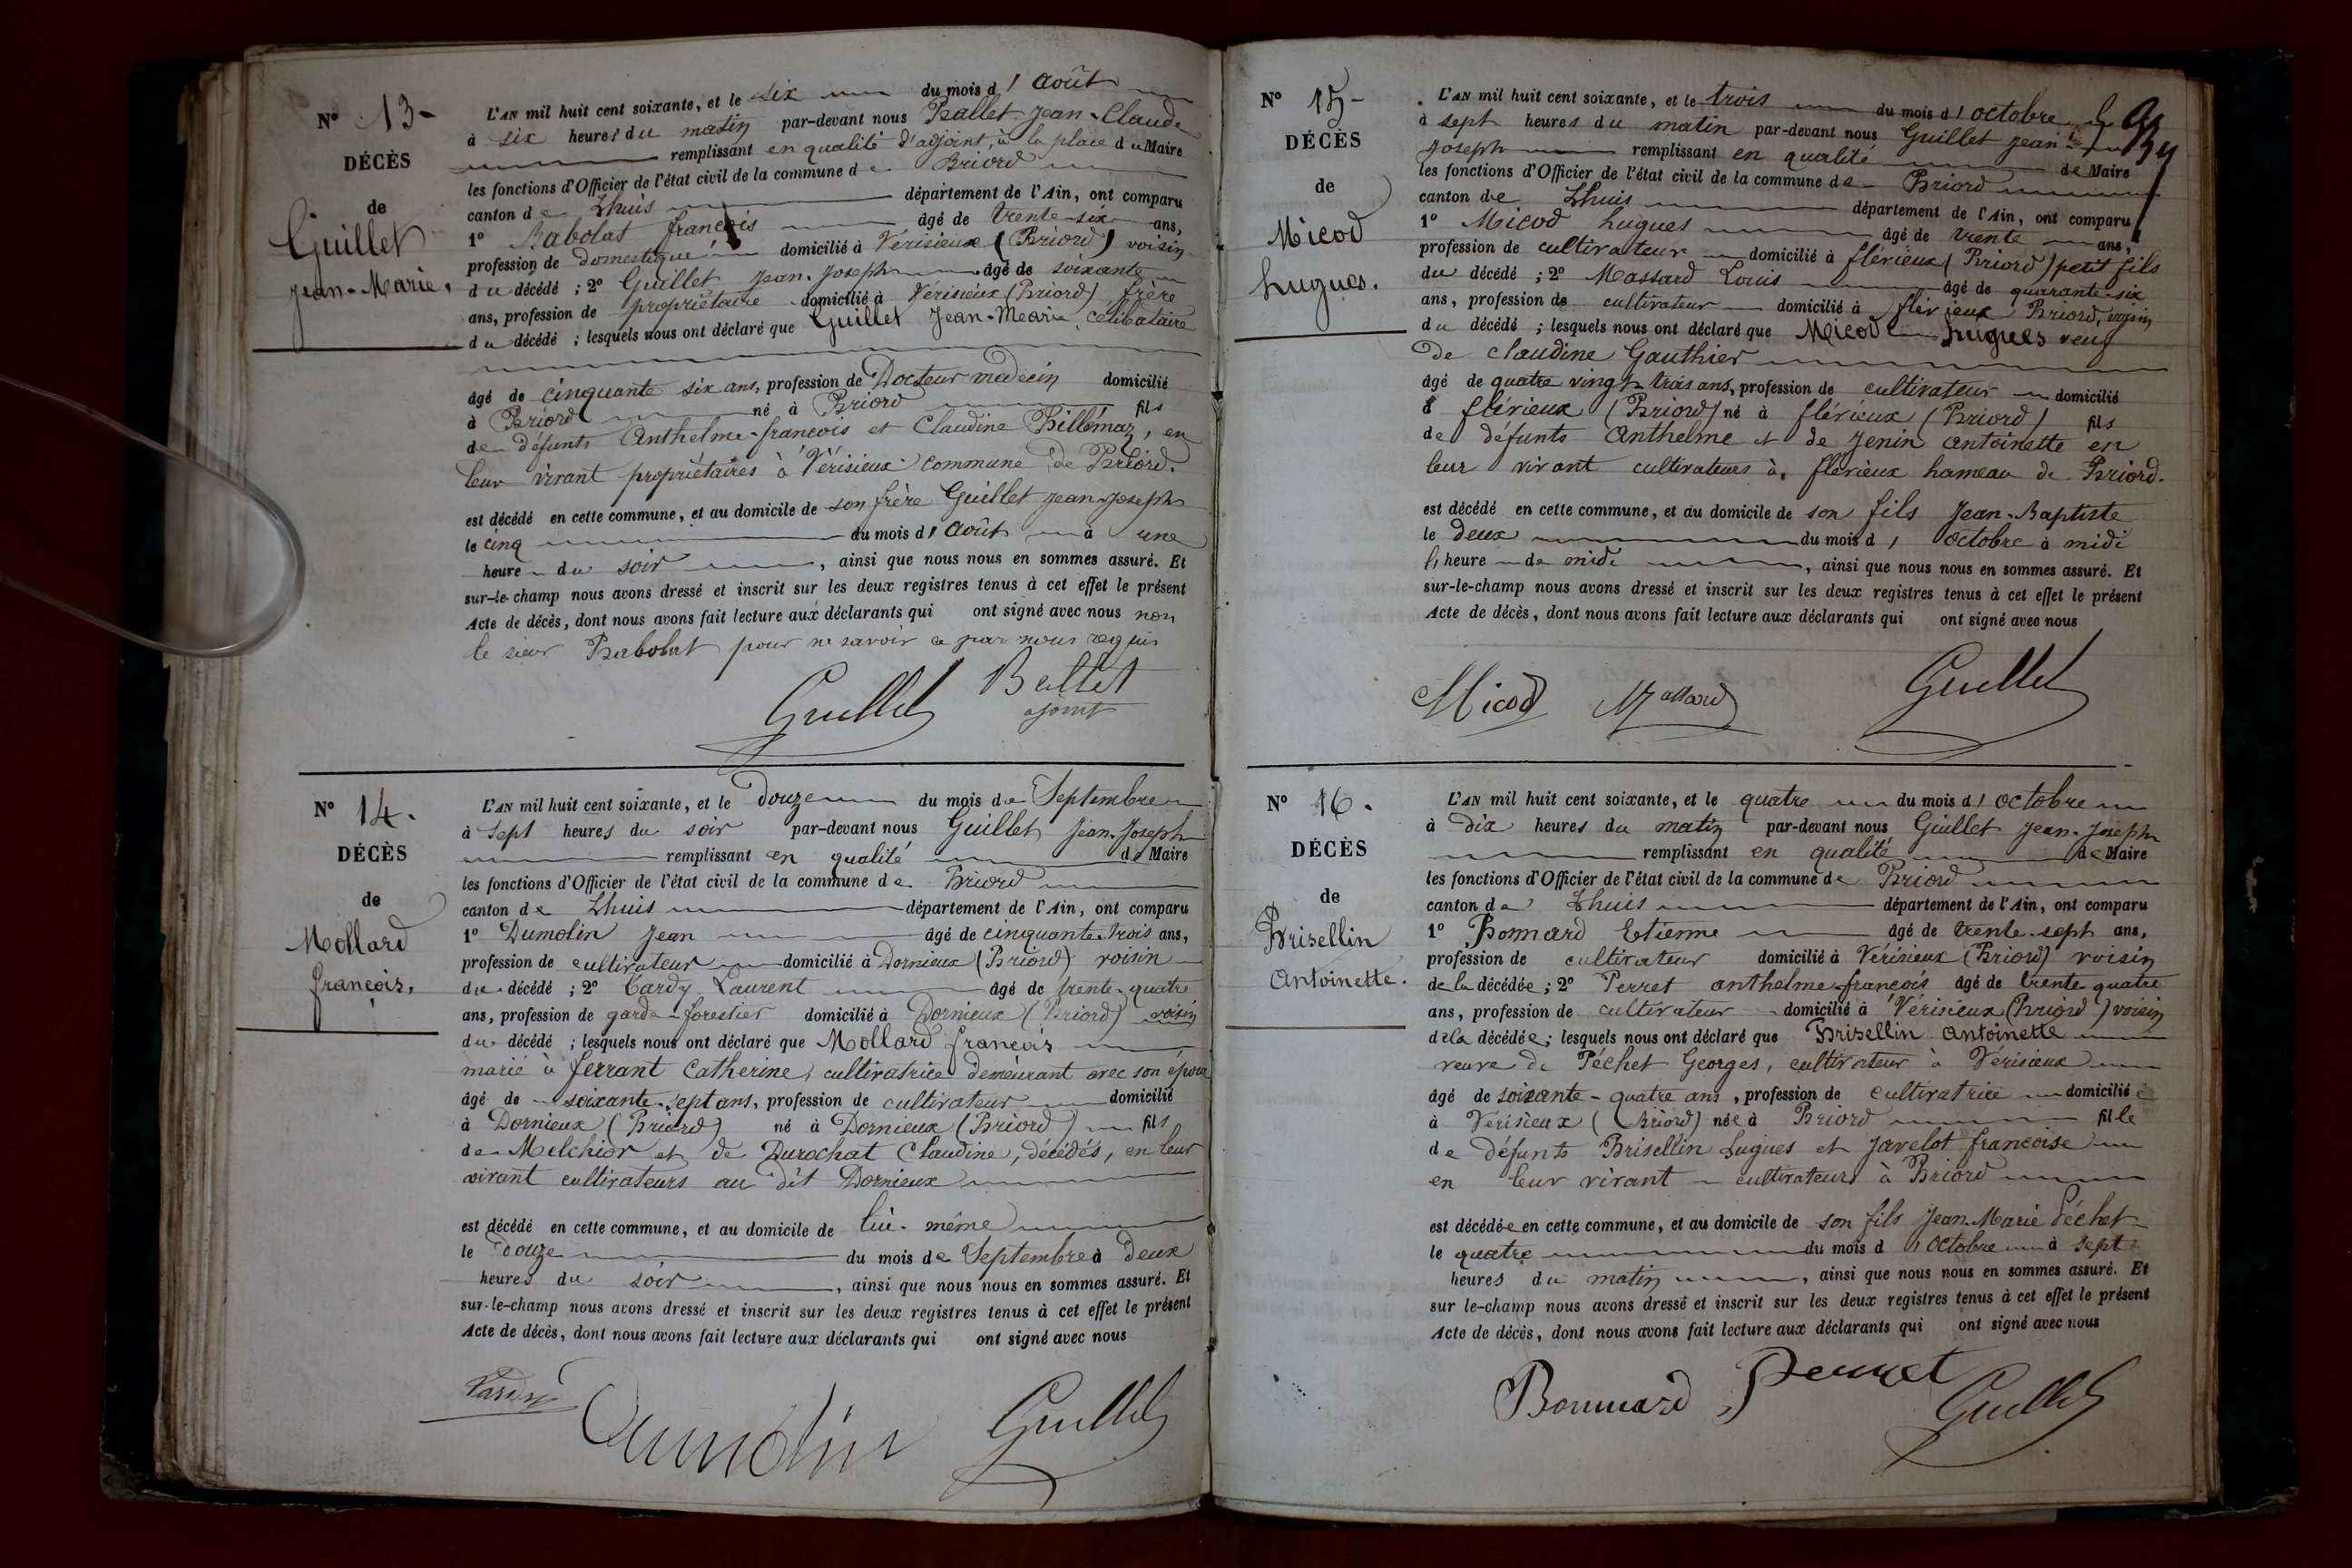 N° 13-
DÉCÈS
de
Guillet
Jean-Marie.
L'AN mil huit cent soixante, et le six du mois d' août
à six heures du matin par-devant nous Ballet Jean-Claude
remplissant en qualité d'adjoint, à la place du Maire
les fonctions d'Officier de l'état civil de la commune de Briord
canton de Lhuis département de l'Ain, ont comparu
1° Babolat françois âgé de trente-six ans,
profession de domestique domicilié à Vérisieux (Briord) voisin
du décédé ; 2° Guillet Jean-Joseph âgé de soixante
ans, profession de propriétaire domicilié à Vérisieux (Briord) frère
du décédé ; lesquels nous ont déclaré que Guillet Jean-Marie, célibataire
âgé de cinquante six ans, profession de Docteur medecin domicilié
à Briord né à Briord fils
de défunts Anthelme-francois et Claudine Billémaz, en
leur vivant propriétaires à Vérisieux commune de Briord.
est décédé en cette commune, et au domicile de son frère Guillet Jean-Joseph
le cinq du mois d' août à une
heure du soir , ainsi que nous nous en sommes assuré. Et
sur-le-champ nous avons dressé et inscrit sur les deux registres tenus à cet effet le présent
Acte de décès, dont nous avons fait lecture aux déclarants qui ont signé avec nous non
le sieur Babolat pour ne savoir ce par nous requis
Guillet Ballet
ajoint
N° 14.
DÉCÈS
de
Mollard
françois.
L'AN mil huit cent soixante, et le douze du mois de Septembre
à sept heures du soir par-devant nous Guillet Jean-Joseph
remplissant en qualité de Maire
les fonctions d'Officier de l'état civil de la commune de Briord
canton de Lhuis département de l'Ain, ont comparu
1° Dumolin Jean âgé de cinquante-trois ans,
profession de cultivateur domicilié à Dornieux (Briord) voisin
du décédé ; 2° Cardy Laurent âgé de trente-quatre
ans, profession de garde-forestier domicilié à Dornieux (Briord) voisin
du décédé ; lesquels nous ont déclaré que Mollard françois
marié à ferrant Catherine, cultivatrice demeurant avec son époux
âgé de soixante-sept ans, profession de cultivateur domicilié
à Dornieux (Briord) né à Dornieux (Briord) fils
de Melchior et de Durochat Claudine, décédés, en leur
vivant cultivateurs au dit Dornieux
est décédé en cette commune, et au domicile de lui-même
le douze du mois de Septembre à deux
heures du soir , ainsi que nous nous en sommes assuré. Et
sur-le-champ nous avons dressé et inscrit sur les deux registres tenus à cet effet le présent
Acte de décès, dont nous avons fait lecture aux déclarants qui ont signé avec nous
Cardy Dumolin Guillet
N° 15-
DÉCÈS
de
Micod
hugues.
L'AN mil huit cent soixante, et le trois du mois d' octobre
à sept heures du matin par-devant nous Guillet Jean
Joseph remplissant en qualité de Maire
les fonctions d'Officier de l'état civil de la commune de Briord
canton de Lhuis département de l'Ain, ont comparu
1° Micod hugues âgé de trente ans,
profession de cultivateur domicilié à flérieux (Briord) petit fils
du décédé ; 2° Massard Louis âgé de quarante-six
ans, profession de cultivateur domicilié à flérieux Briord, voisin
du décédé ; lesquels nous ont déclaré que Micod hugues veuf
de claudine Gauthier
âgé de quatre vingt trois ans, profession de cultivateur domicilié
à flérieux (Briord) né à flérieux (Briord) fils
de défunts Anthelme et de Jenin antoinette en
leur vivant cultivateurs à flérieux hameau de Briord.
est décédé en cette commune, et au domicile de son fils Jean-Baptiste
le deux du mois d' octobre à midi
heure de midi , ainsi que nous nous en sommes assuré. Et
sur-le-champ nous avons dressé et inscrit sur les deux registres tenus à cet effet le présent
Acte de décès, dont nous avons fait lecture aux déclarants qui ont signé avec nous
Micod Massard Guillet
N° 16.
DÉCÈS
de
Brisellin
Antoinette.
L'AN mil huit cent soixante, et le quatre du mois d' octobre
à dix heures du matin par-devant nous Guillet Jean-Joseph
remplissant en qualité de Maire
les fonctions d'Officier de l'état civil de la commune de Briord
canton de Lhuis département de l'Ain, ont comparu
1° Bonnard Etienne âgé de trente-sept ans,
profession de cultivateur domicilié à Vérisieux (Briord) voisin
de la décédée ; 2° Perret anthelme-françois âgé de trente-quatre
ans, profession de cultivateur domicilié à Vérisieux (Briord) voisin
de la décédée ; lesquels nous ont déclaré que Brisellin antoinette
veuve de Péchet Georges, cultivateur à Vérisieux
âgé de soixante-quatre ans, profession de cultivatrice domicilié e
à Vérisieux (Briord) née à Briord fille
de défunts Brisellin hugues et Javelot francoise
en leur vivant cultivateurs à Briord
est décédée en cette commune, et au domicile de son fils Jean-Marie Péchet
le quatre du mois d' octobre à sept
heures du matin , ainsi que nous nous en sommes assuré. Et
sur le-champ nous avons dressé et inscrit sur les deux registres tenus à cet effet le présent
Acte de décès, dont nous avons fait lecture aux déclarants qui ont signé avec nous
Bonnard Perret Guillet